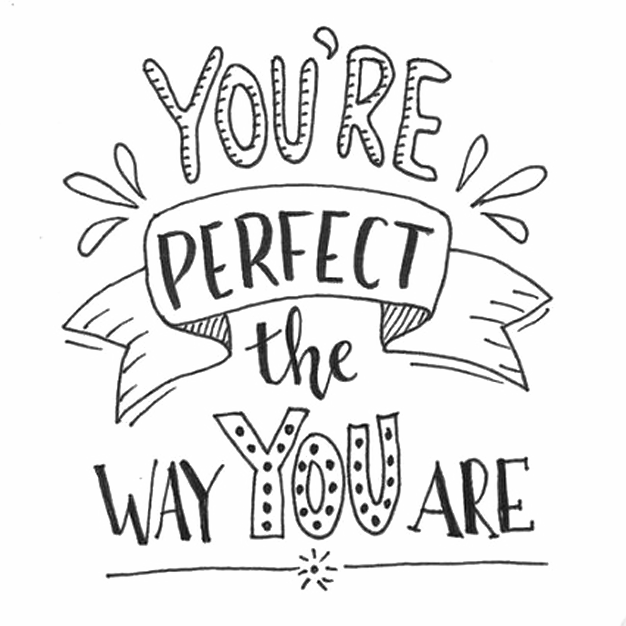 YOU'RE
PERFECT
the
WAY YOU ARE